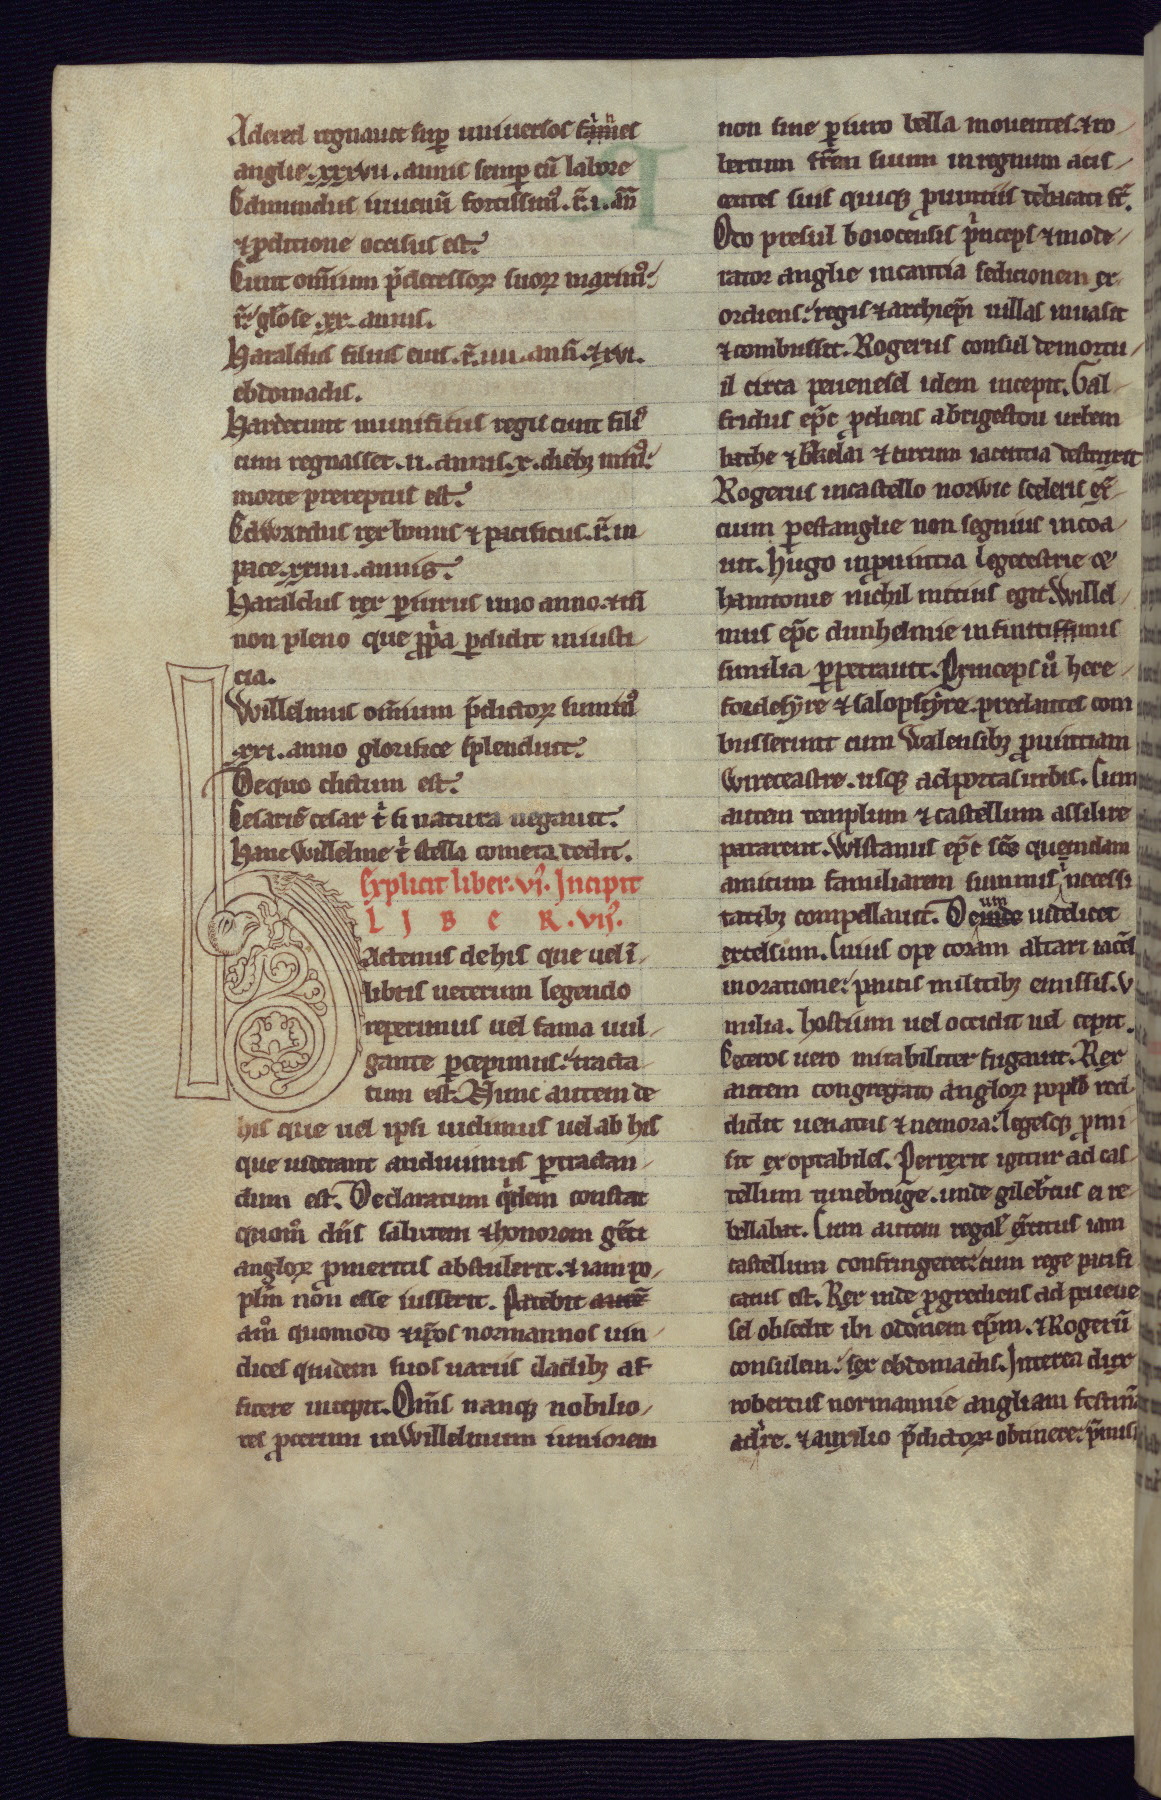 Adelred regnauit sup universos
anglie .xxxvii. annis semp cū labore
Edmundus iuuenū fortissimꝰ. r̄. i. añ
⁊ pditione occisus est.
Cnut om̄ium p̄decessorꝝ suorꝝ maximꝰ.
r̄. gl̄ose .xx. annis.
Haraldus filius eius .r̄. iiii. anñ. ⁊ xvi.
ebdomadis.
Hardecnut munificus regis cnut filiꝰ
cum regnasset .ii. annis .x. diebꝫ minꝰ.
morte prereptus est.
Edwardus rex bonus ⁊ pacificus .r̄. in
pace .xxiiii. annis.
Haraldus rex piurus uno anno. ⁊ iħ
non pleno que ppa pdidit iniusti-
cia.
Willelmus om̄ium p̄dictorꝝ summꝰ
.xxi. anno glorifice splenduit.
De quo dictum est.
Cesariē cesar t̄ si natura negauit.
Hanc Willelme t̄ stella cometa dedit.
Explicit liber .vi. Incipit
L I B E R .vii.
Hactenus de his que uel ī-
libris ueterum legendo
reperimus uel fama uul-
gante pcepimus. tracta
tum est. Nunc autem de
his que uel ipsi uidimus uel ab his
que uiderant audiuimus ptractan-
dum est. Declaratum qͥdem constat
quom̊ dn̄s salutem ⁊ honorem gēti
anglorꝝ pmeritis abstulerit. ⁊ iam po-
plm̄ non esse iusserit. Patebit autē
am̊ quomodo ⁊ ip̄os normannos uin-
dices quidem suos uariis cladibꝫ af-
ficere incepit. Om̄s nanqꝫ nobilio-
res pcerum in Willelmum iuniorem
non sine piuro bella mouentes. ⁊ ro-
bertum fr̄em suum in regnum acis-
centes suis quiqꝫ puintiis debacati st̄.
Odo presul boiocensis pͥnceps ⁊ mode-
rator anglie incantia sedicionem ex-
ordiens. regis ⁊ archiep̄i uillas inuasit
⁊ combussit. Rogerus consul de moretu-
il circa peuenesel idem incepit. Gal-
fridus ep̄c pdiens a brigestou urbem
bathe ⁊ berkelai ⁊ circum iacentia destruxit
Rogerus in castello norwic sceleris ex̄-
cium pestanglie non segnius incoa-
uit. Hugo in puintia Legecestrie ⁊
hamtonie nichil mitius egit. Willel-
mus ep̄c dunhelmie in finitissimis
similia ppetrauit. Princeps ů here-
fordesyre ⁊ salopstyre predantes com
busserunt cum Walensibꝫ puintiam
Wireceastre. usqꝫ ad portas urbis. Cum
autem templum ⁊ castellum assilire
pararent. Wlstanus ep̄c sc̄s quemdam
amicum familiarem summis necessi
tatibꝫ compellauit. Deum uidelicet
excelsum. Cuius ope coram altari iacēs
in oratione. paucis militibꝫ emissis. v
milia. hostium uel occidit uel cepit.
Ceteros uero mirabiliter fugauit. Rex
autem congregato anglorꝝ poplo red-
didit uenatus ⁊ nemora. legesqꝫ pmi-
sit exoptabiles. Perrexit igitur ad cas-
tellum tunebruge. unde gilebtus ei re-
bellabat. Cum autem regal' exc̄itus iam
castellum confringeret. cum rege pacifi
catus est. Rex inde pgrediens ad peuene
sel obsedit ibi odonem ep̄m. ⁊ Rogerū
consulem. sex ebdomadis. Interea dux
robertus normannie angliam festinās
adire. ⁊ auxilio p̄dictorꝝ obtinere. p̄misit